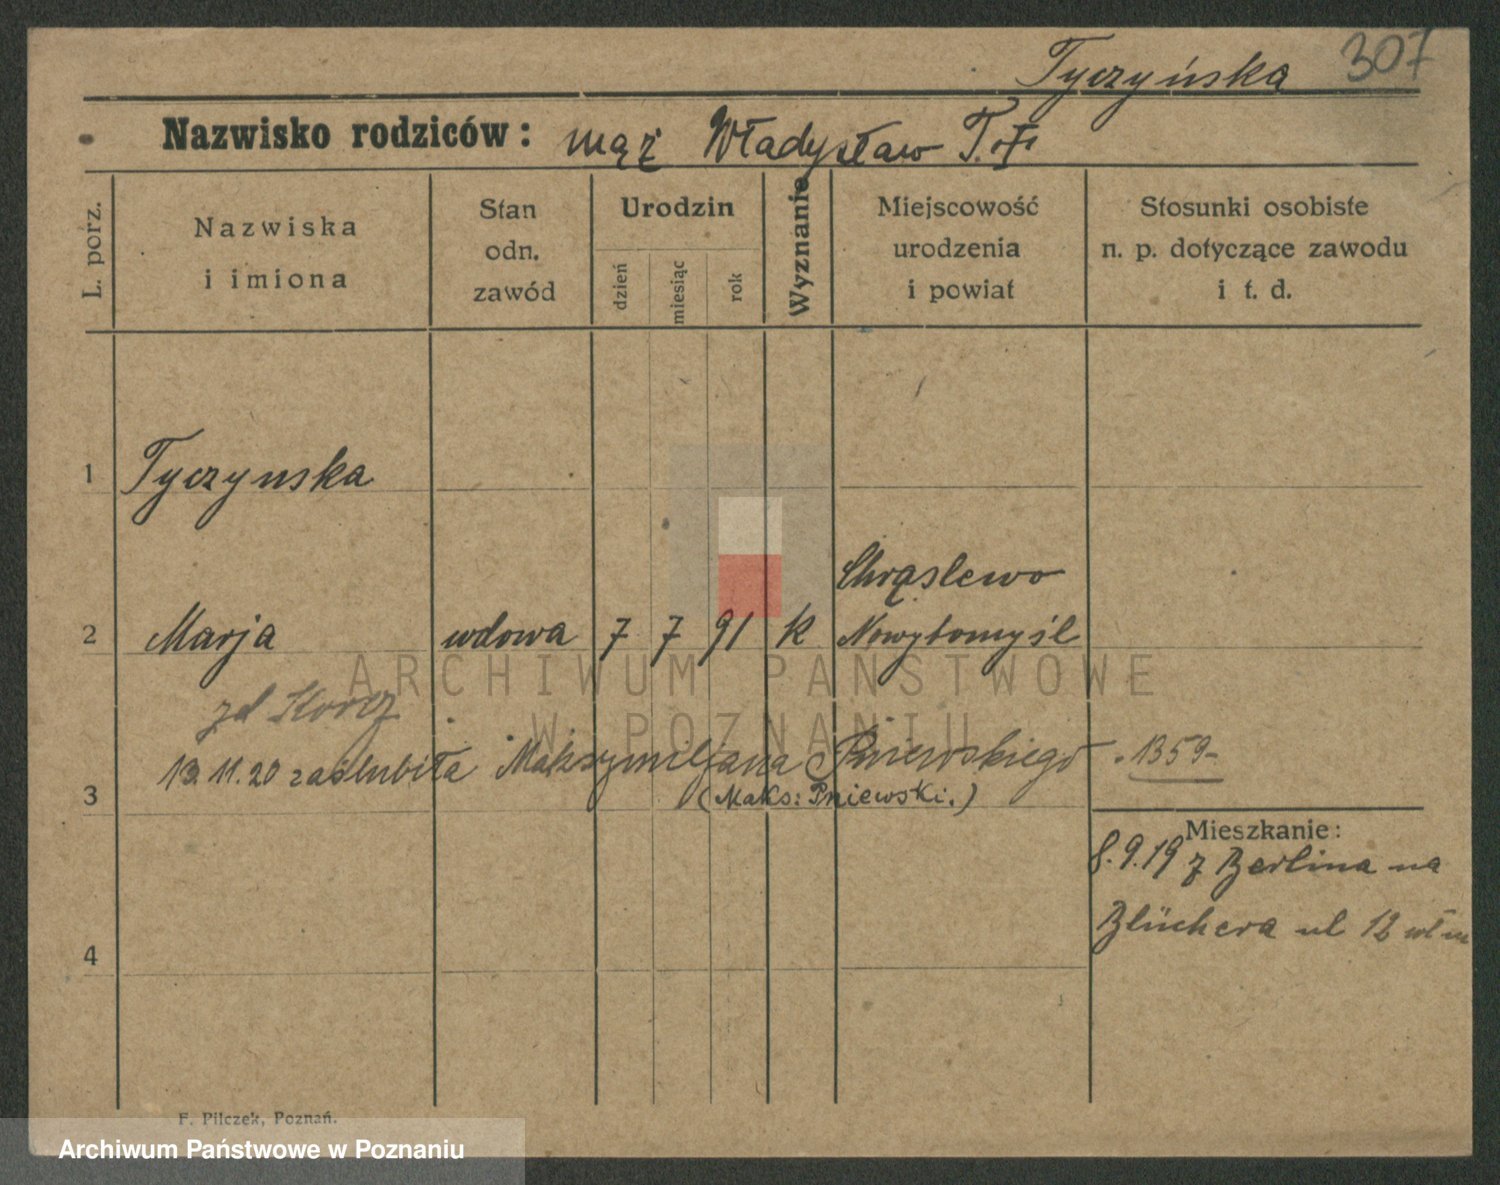 Tyczyńska 307
Nazwisko rodziców: mąż Władysław T. †
L. porz.
Nazwiska
i imiona
Stan
odn.
zawód
Urodzin
dzień
miesiąc
rok
Wyznanie
Miejscowość
urodzenia
i powiat
Stosunki osobiste
n. p. dotyczące zawodu
i t. d.
1 Tyczynska
Chrąslewo
2 Marja wdowa 7 7 91 k Nowytomyśl
ARCHIWUM PAŃSTWOWE
W POZNANIU
zd Korcz
13.11.20 zaślubiła Maksymiljana Pniewskiego 1359-
3 (Maks: Pniewski.)
Mieszkanie:
8.9.19 z Berlina na
Blüchera ul 12
4
F. Pilczek, Poznań.
Archiwum Państwowe w Poznaniu